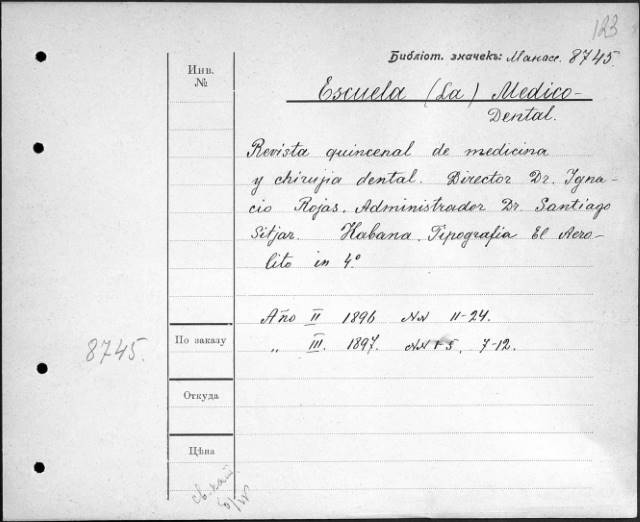 123
Библіот. значекъ: Манасс. 8745.
Инв.
№
Escuela (La) Medico-
Dental.
Revista quincenal de medicina
y chirujia dental. Director Dr. Igna-
cio Rojas. Administrador Dr. Santiago
Sitjar. Habana. Tipografia El Aero-
lito in 4º
Año II 1896 NN 11-24.
„ III. 1897. NN 1-5, 7-12.
По заказу
8745.
Откуда
Цѣна
св.